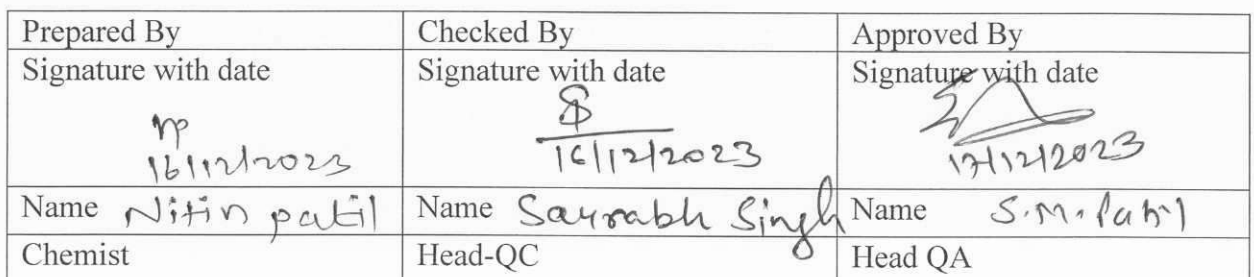 Prepared By Checked By Approved By
Signature with date Signature with date Signature with date
16/12/2023 16/12/2023 17/12/2023
Name Nitin patil Name Saurabh Singh Name S.M. Patil
Chemist Head-QC Head QA